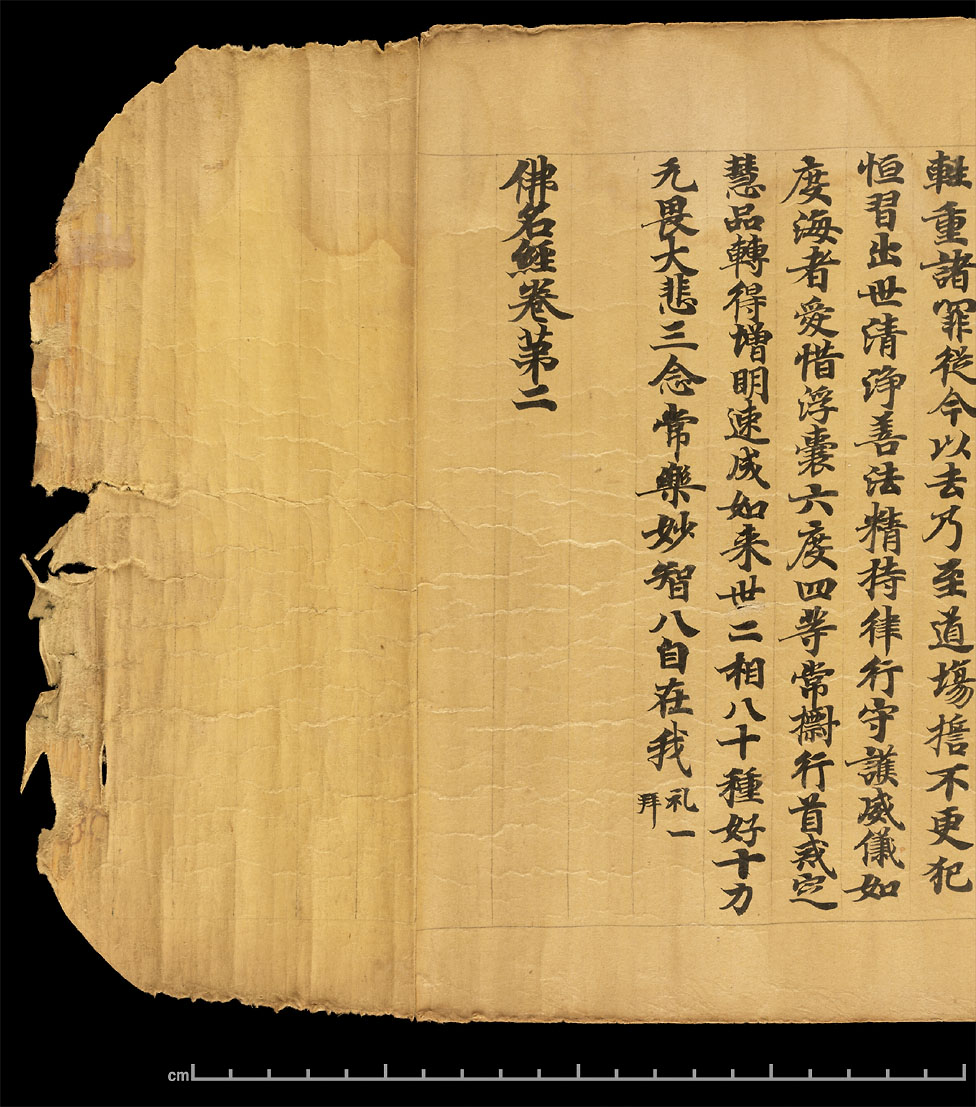 軽重諸罪從今以去乃至道場擔不更犯
恒習出世清浄善法精持律行守護威儀如
度海者愛惜浮囊六度四等常摽行首戒定
慧品轉得增明速成如来世二相八十種好十力
无畏大悲三念常樂妙智八自在我
礼一
拜
佛名經卷苐二
cm